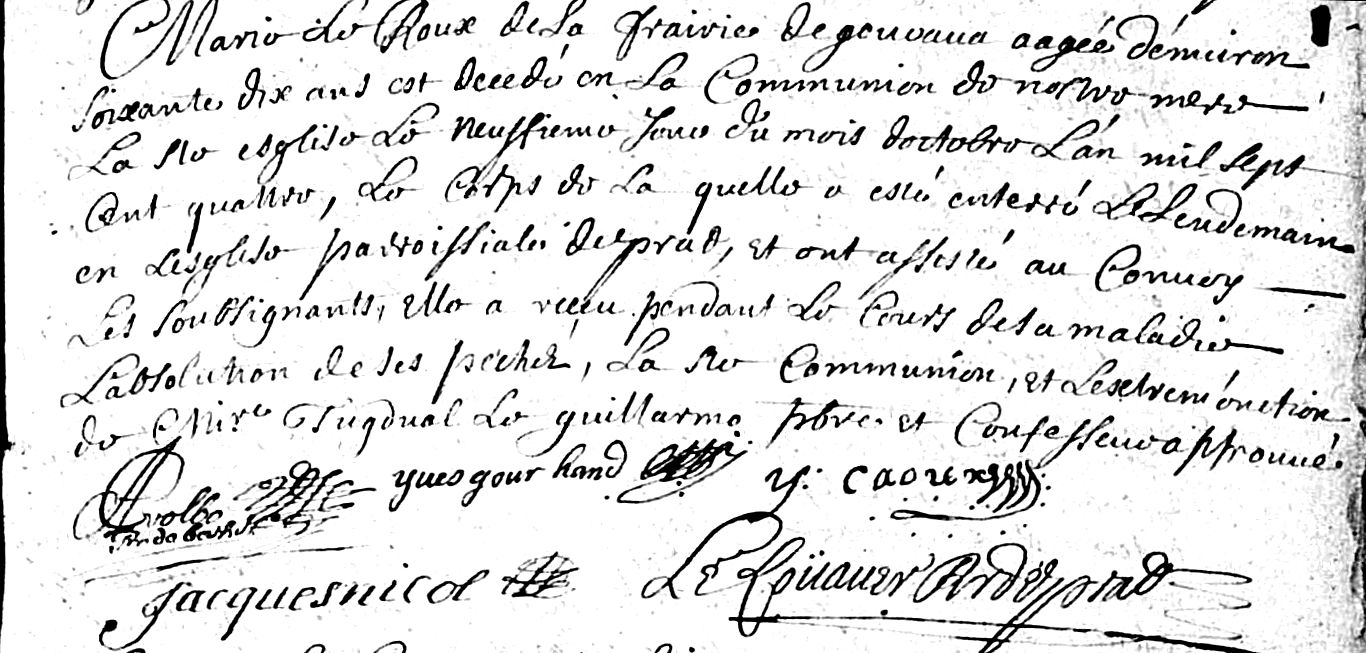 Marie Le Roux de La frairie de gouvaua aagée d'enuiron
soixante dix ans est decedé en La Communion de nostre mere
La ste esglise Le neuffieme Jour du mois doctobre L'an mil sept
Cent quattre, Le Corps de La quelle a esté enterré Le Lendemain
en Lesglise parroissiale de prat, et ont assisté au Conuoy
Les soubsignants, Elle a reçeu pendant Le Cours de sa maladie
L'absolution de ses pechez, La ste Communion, et Lextrem'onction
de Mire Tugdual Le guillarme pbre. et Confesseur approuué.
yues gour hand y: caouren
jacques nicol Le Coüauer Rr de prat